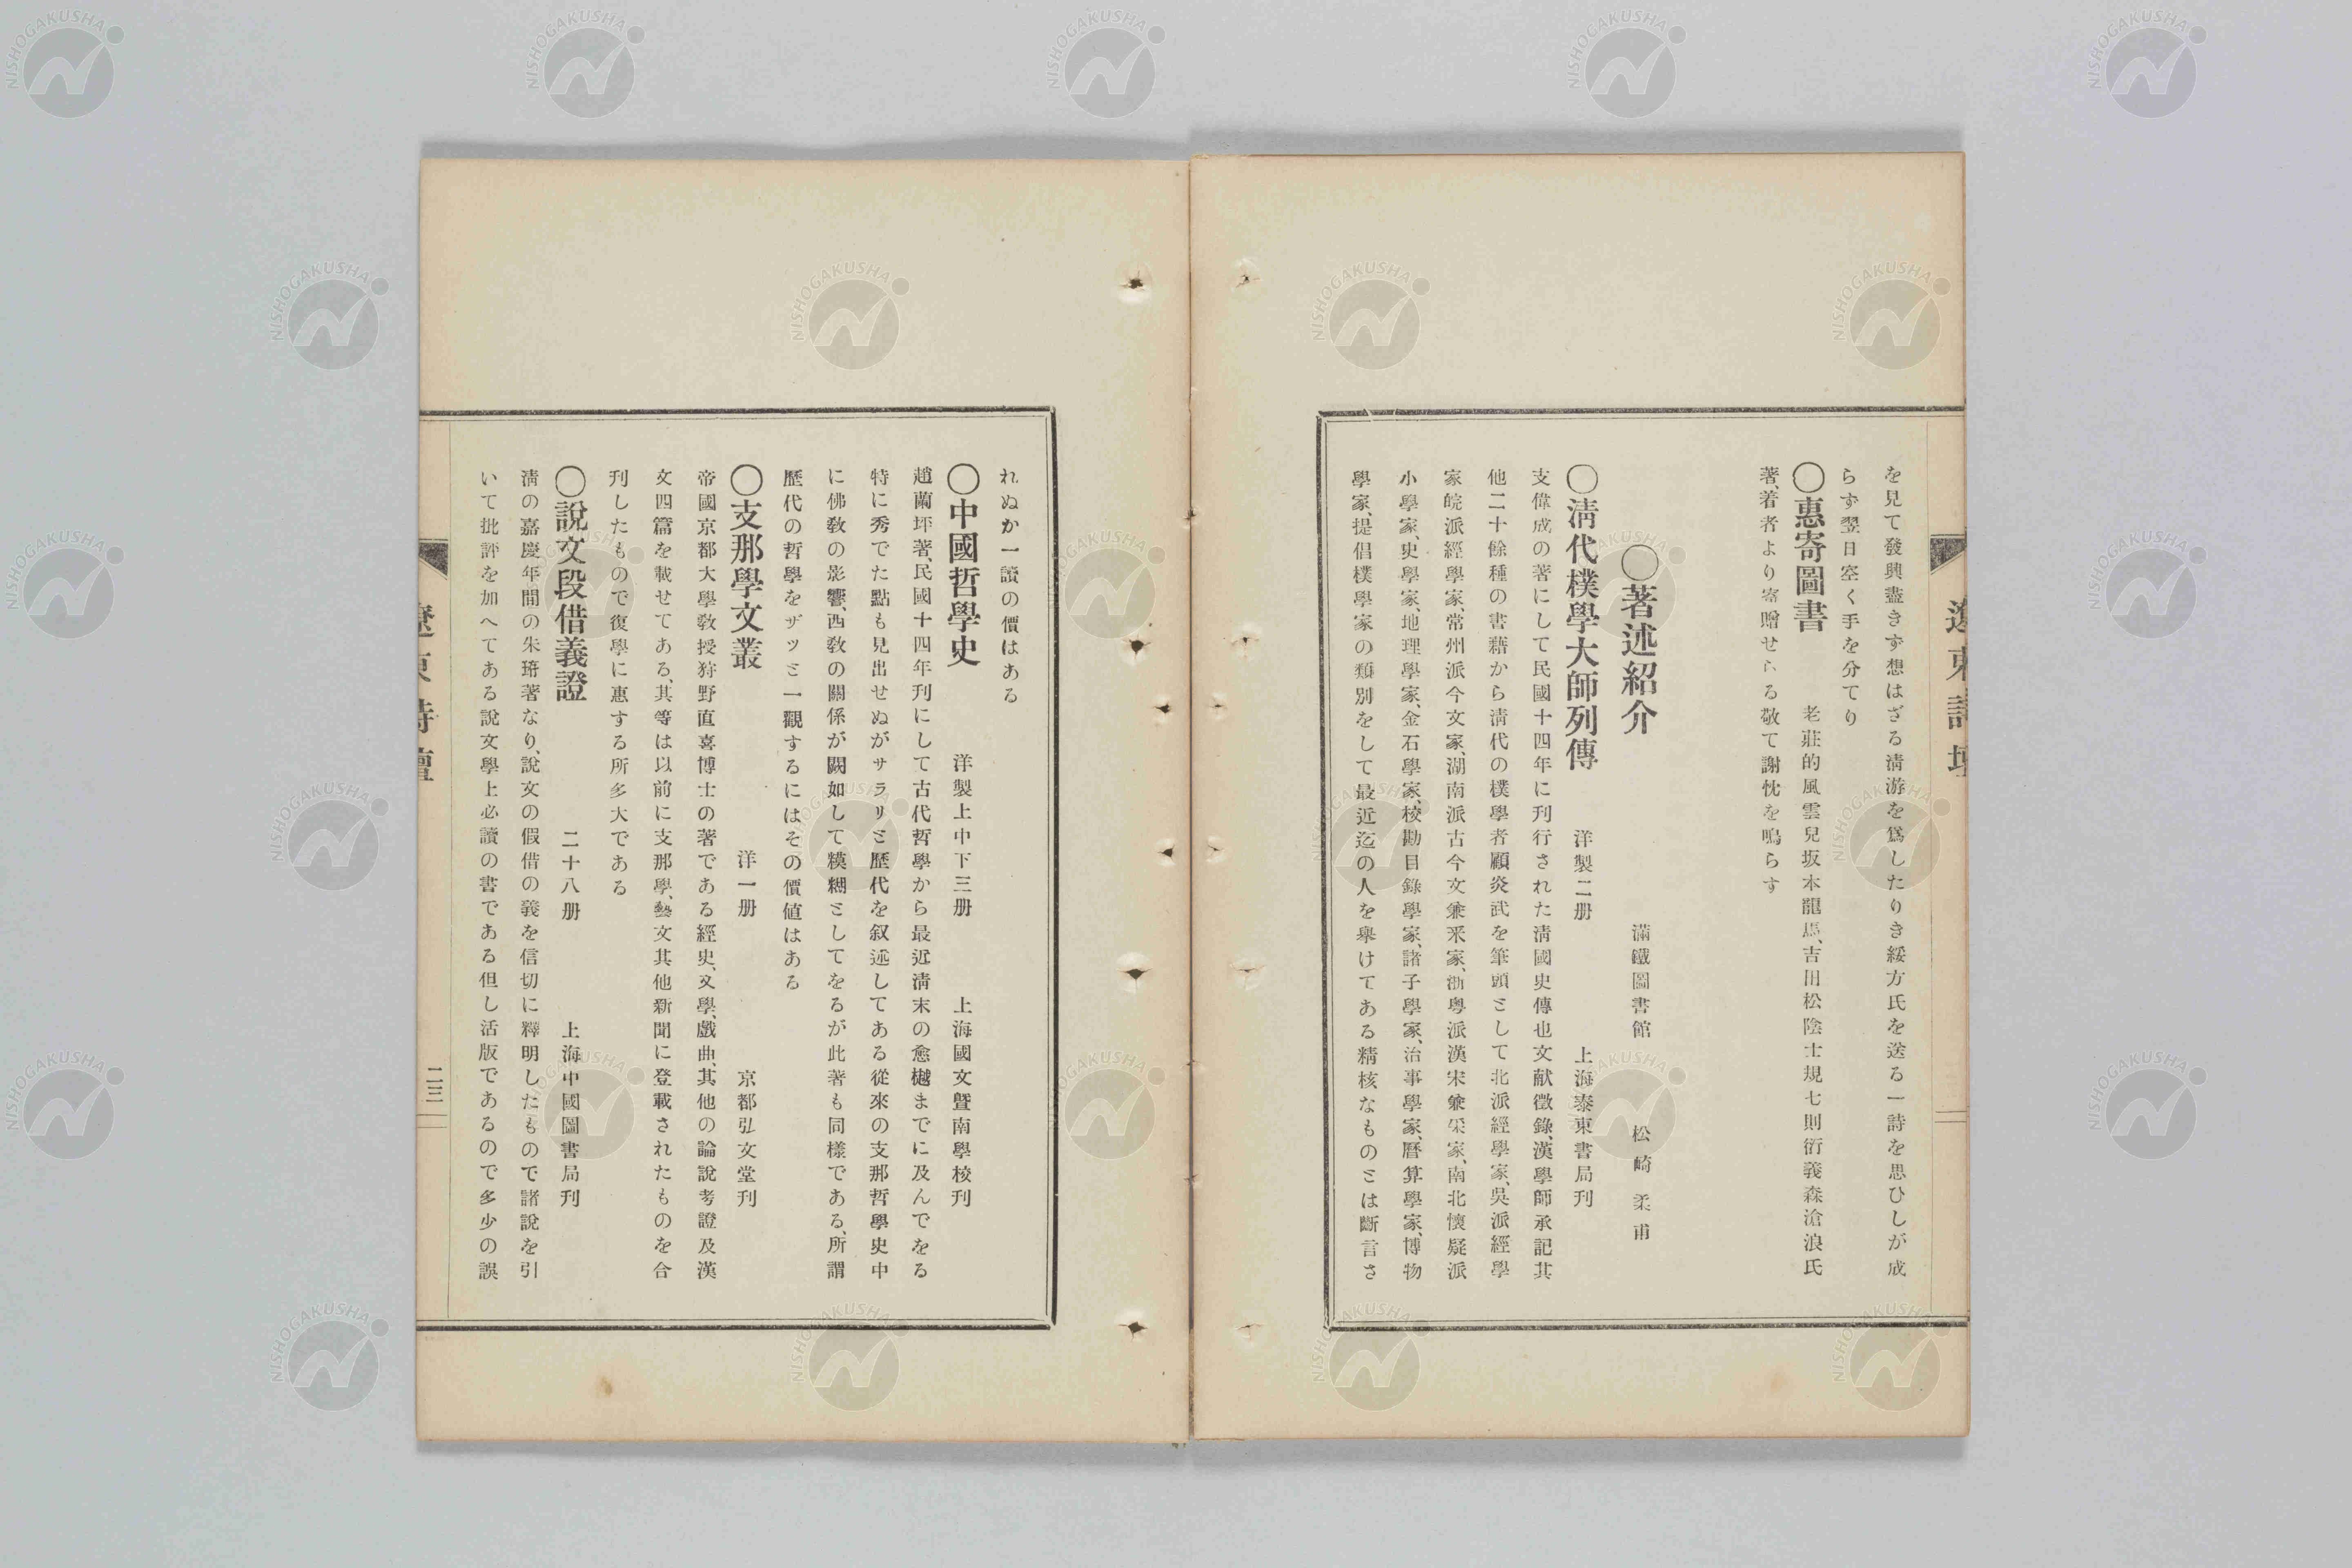 を見て發興盡きず想はざる淸游を爲したりき綏方氏を送る一詩を思ひしが成
らず翌日空く手を分てり
〇惠寄圖書 老莊的風雲兒坂本龍馬、吉田松陰士規七則衍義森滄浪氏
著、着者より寄贈せらる敬て謝忱を鳴らす
〇著述紹介 滿鐵圖書館 松崎柔甫
〇淸代樸學大師列傳 洋製二册 上海泰東書局刊
支偉成の著にして民國十四年に刊行された淸國史傳也文献徵錄、漢學師承記其
他二十餘種の書藉から淸代の樸學者顧炎武を筆頭として北派經學家、吳派經學
家皖派經學家、常州派今文家、湖南派古今文兼釆家、浙粤派漢宋兼采家、南北懷疑派
小學家、史學家、地理學家、金石學家、校勘目錄學家、諸子學家、治事學家、曆算學家、博物
學家、提倡樸學家の類別をして最近迄の人を擧けてある精核なものとは斷言さ
れぬか一讀の價はある
〇中國哲學史 洋製上中下三册 上海國文曁南學校刊
趙蘭坪著、民國十四年刊にして古代哲學から最近淸末の愈樾までに及んでをる
特に秀でた點も見出せぬがサラリと歷代を叙述してある從來の支那哲學史中
に佛敎の影響、西敎の關係が闕如して糢糊としてをるが此著も同樣である、所謂
歷代の哲學をザッと一觀するにはその價値はある
〇支那學文叢 洋一册 京都弘文堂刊
帝國京都大學敎授狩野直喜博士の著である經史、文學、戲曲、其他の論說考證及漢
文四篇を載せてある、其等は以前に支那學、藝文其他新聞に登載されたものを合
刊したもので復學に惠する所多大である
〇說文段借義證 二十八册 上海中國圖書局刊
淸の嘉慶年間の朱珔著なり、說文の假借の義を信切に釋明したもので諸說を引
いて批評を加へてある說文學上必讀の書である但し活版であるので多少の誤
遼東詩壇
二三
NISHOGAKUSHA